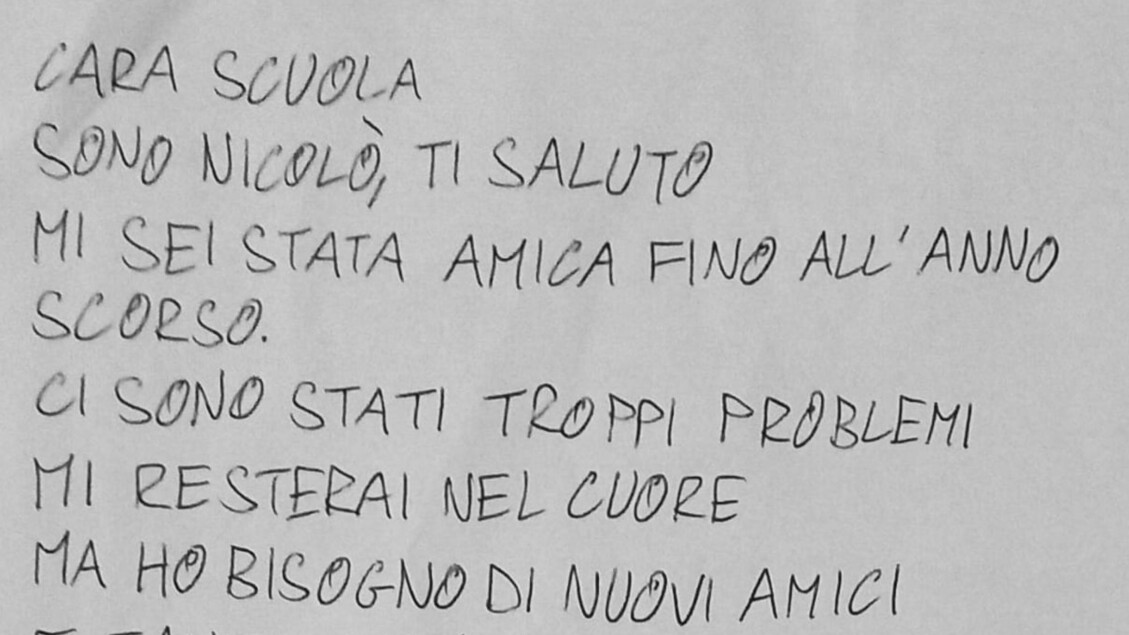 CARA SCUOLA
SONO NICOLÒ, TI SALUTO
MI SEI STATA AMICA FINO ALL'ANNO
SCORSO.
CI SONO STATI TROPPI PROBLEMI
MI RESTERAI NEL CUORE
MA HO BISOGNO DI NUOVI AMICI